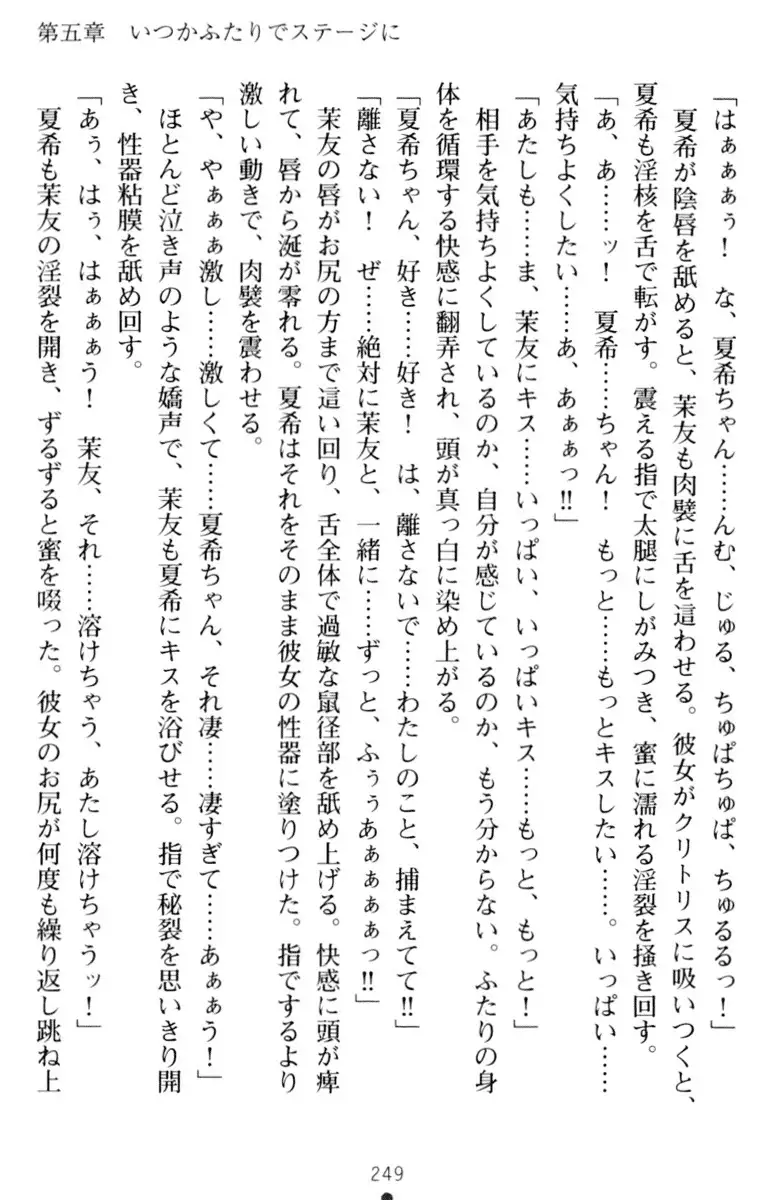 第五章　いつかふたりでステージに
「はぁぁぁぅ！　な、夏希ちゃん……んむ、じゅる、ちゅぱちゅぱ、ちゅるるっ！」
　夏希が陰唇を舐めると、茉友も肉襞に舌を這わせる。彼女がクリトリスに吸いつくと、
夏希も淫核を舌で転がす。震える指で太腿にしがみつき、蜜に濡れる淫裂を掻き回す。
「あ、あ……ッ！　夏希……ちゃん！　もっと……もっとキスしたい……。いっぱい……
気持ちよくしたい……あ、あぁぁっ‼」
「あたしも……ま、茉友にキス……いっぱい、いっぱいキス……もっと、もっと！」
　相手を気持ちよくしているのか、自分が感じているのか、もう分からない。ふたりの身
体を循環する快感に翻弄され、頭が真っ白に染め上がる。
「夏希ちゃん、好き……好き！　は、離さないで……わたしのこと、捕まえてて‼」
「離さない！　ぜ……絶対に茉友と、一緒に……ずっと、ふぅぅあぁぁぁぁっ‼」
　茉友の唇がお尻の方まで這い回り、舌全体で過敏な鼠径部を舐め上げる。快感に頭が痺
れて、唇から涎が零れる。夏希はそれをそのまま彼女の性器に塗りつけた。指でするより
激しい動きで、肉襞を震わせる。
「や、やぁぁぁ激し……激しくて……夏希ちゃん、それ凄……凄すぎて……あぁぁう！」
　ほとんど泣き声のような嬌声で、茉友も夏希にキスを浴びせる。指で秘裂を思いきり開
き、性器粘膜を舐め回す。
「あぅ、はぅ、はぁぁぁう！　茉友、それ……溶けちゃう、あたし溶けちゃうッ！」
　夏希も茉友の淫裂を開き、ずるずると蜜を啜った。彼女のお尻が何度も繰り返し跳ね上
249